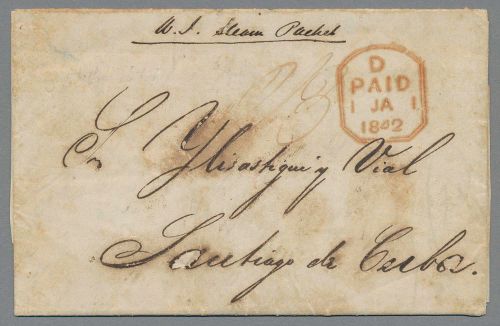 W. I. Steam Packet
D
PAID
1 JA 1
1842
Sr Ylisastigui y Vial
Santiago de Cuba.